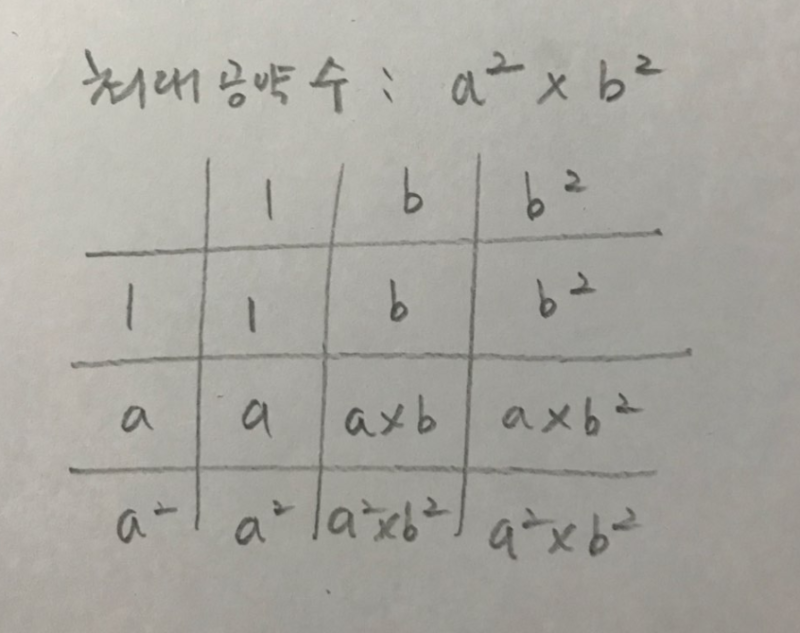 최대공약수 : a² × b²
1 b b²
1 1 b b²
a a a×b a×b²
a² a² a²×b² a²×b²